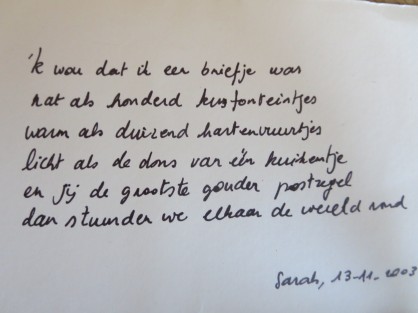 'k wou dat ik een briefje was
nat als honderd kusfonteintjes
warm als duizend hartenvuurtjes
licht als de dons van één kuikentje
en jij de grootste gouden postzegel
dan stuurden we elkaar de wereld rond
Sarah, 13-11-2003